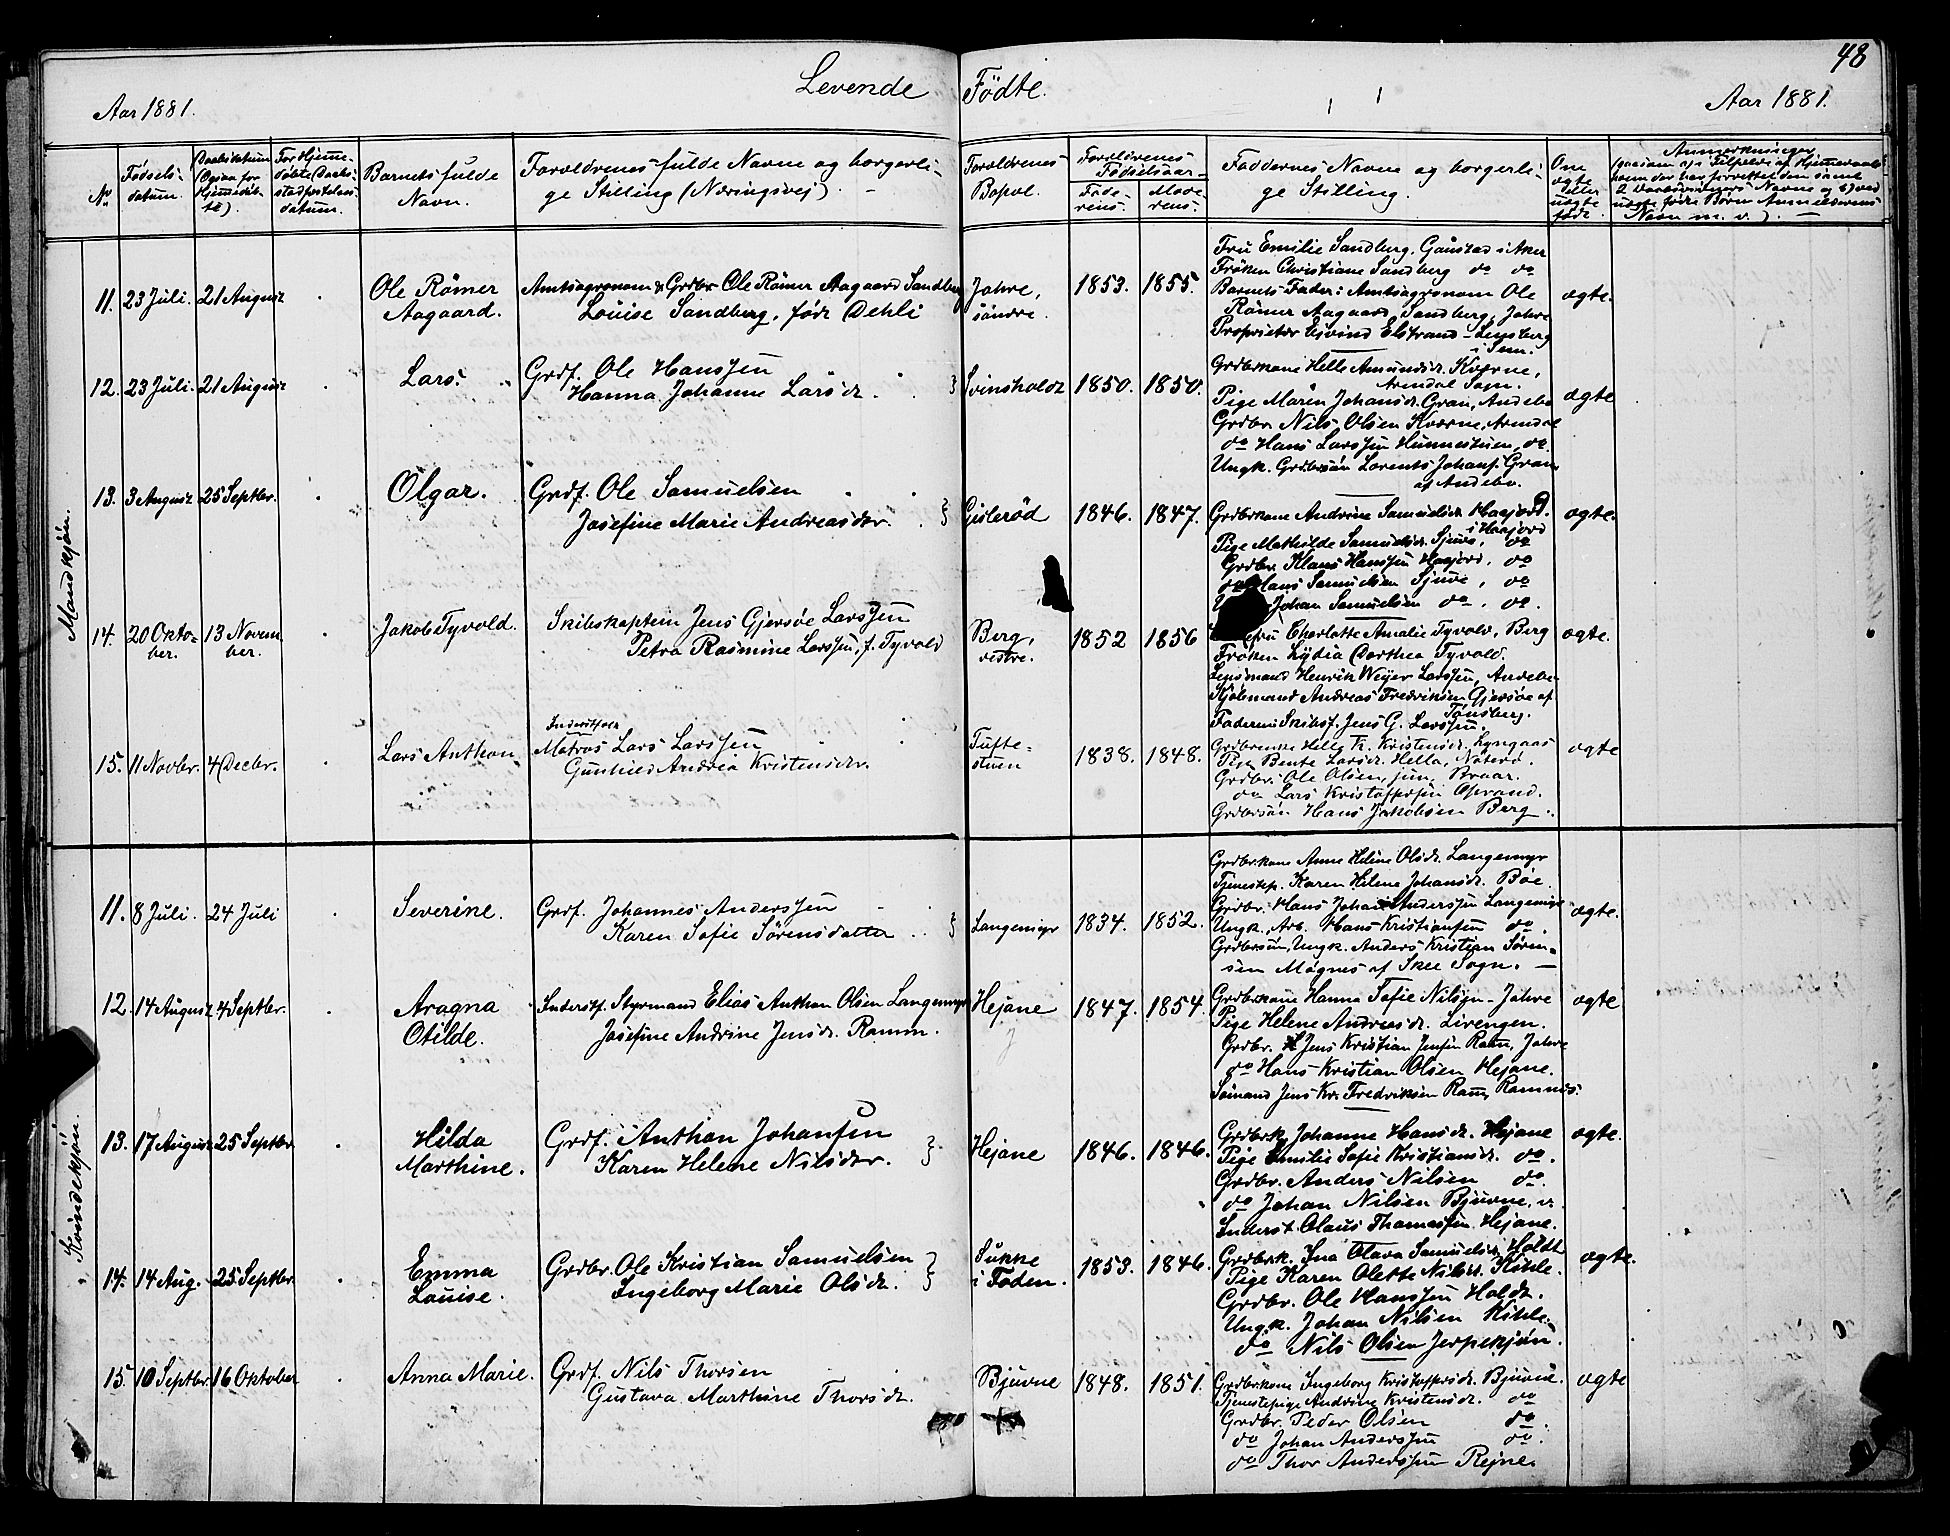 48
Levende Födte.
Aar 1881.
Aar 1881.
No
Fødsels-
datum.
Daabsdatum
(Ogsaa for
Hjemmedöb-
te).
For Hjemme-
døbte Daabs-
stadfæstelses-
datum.
Barnets fulde
Navn.
Forældrenes fulde Navne og borgerli-
ge Stilling (Næringsvej). -
Forældrenes
Bopæl.
Forældrenes
Födselsaar.
Fade-
rens.
Mode-
rens.
Faddernes Navne og borgerli-
ge Stilling.
Om
ægte
eller
uægte
født.
Anmærkninger
Navn m. v.). —
Mandkjön.
11. 23 Juli. 21 August
Ole Römer
Aagaard.
Amtsagronom & Grdbr Ole Römer Aagaard Sandberg
Louise Sandberg, født Dehli
Jahre,
söndre.
1853. 1855.
Fru Emilie Sandberg. Gaustad i Aker
Frøken Christiane Sandberg do do
Barnets Fader: Amtsagronom Ole
Römer Aagaard Sandberg, Jahre
Proprietær Ejvind Elstrand - Lensberg
i Sem.
ægte.
12. 23 Juli. 21 August
Lars.
Grdf. Ole Hanssen
Hanna Johanne Larsdr.
Svinsholdt 1850. 1850.
Grdbrkone Helle Amundsdr. Kværne,
Arendal Sogn.
Pige Maren Johansdr. Gran, Andebo
Grdbr. Nils Olsen Kværne, Arendal
do Hans Larssen Hunnestuen, do
Ungk. Grdbrsön Lorents Johans. Gran
af Andebo.
ægte
13. 3 August 25 Septbr.
Olgar.
Grdf. Ole Samuelsen
Josefine Marie Andreasdtr.
Gislerød 1846. 1847.
Grdbrkone Andrine Samuelsdr. Haasjord.
i Haasjord
Pige Mathilde Samuelsdr. Sjuve, do
Grdbr. Klaus Hanssen Haasjord, do
do Hans Samuelsen Sjuve, do
Johan Samuelsen do, do.
ægte.
14. 20 Okto-
ber. 13 Novem
ber.
Jakob Tyvold.
Skibskaptein Jens Gjersøe Larssen
Petra Rasmine Larssen, f. Tyvold
Berg,
vestre.
1852 1856
Charlotte Amalie Tyvold, Berg
Frøken Lydia Dorthea Tyvold.
Lensmand Henrik Weyer Larssen, Andebo
Kjöbmand Andreas Fredriksen Gjersøe af
Tönsberg.
Faderen: Skibsf. Jens G. Larssen.
ægte.
15. 11 Novbr. 4 Decbr.
Lars Anthon
Inderstfolk
Matros Lars Larssen
Gunhild Andrea Kristensdr.
Tufte-
stuen
1838. 1848.
Grdbrenke Helle K. Kristensdr. Lyngaas
Pige Bente Larsdr. Hella, Nøterø.
Grdbr. Ole Olsen, jun, Braar.
do Lars Kristoffersen Oprand.
Grdbrsön Hans Jakobsen Berg.
ægte
Kvindekjön.
11. 8 Juli. 24 Juli
Severine.
Grdf. Johannes Anderssen
Karen Sofie Sörensdatter
Langemyr 1834. 1852.
Grdbrkone Anne Helene Olsdr. Langemyr
Tjenestep. Karen Helene Johansdr. Böe.
Grdbr. Hans Johan Anderssen Langemyr
Ungk. Arb. Hans Kristiansen do.
Grdbrsön, Ungk. Anders Kristian Sören-
sen Mögnes af Skee Sogn. —
ægte.
12. 14 August 4 Septbr.
Aragna
Otilde.
Inderstf. Styrmand Elias Anthon Olsen Langemyr
Josefine Andrine Jensdr. Ramm.
Hejane 1847. 1854.
Grdbrkone Hanna Sofie Nilsen - Jahre
Pige Helene Andreasdr. Lirengen.
Grdbr. Jens Kristian Jensen Ram, Jahre
do Hans Kristian Olsen Hejane.
Sömand Jens Kr. Fredriksen Ram, Ramnes.
ægte
13. 17 August 25 Septbr
Hilda
Marthine.
Grdf. Anthon Johansen
Karen Helene Nilsdtr.
Hejane 1846. 1846.
Grdbrk. Johanne Hansdr. Hejane
Pige Emilie Sofie Kristiansdr. do.
Grdbr. Anders Nilsen do.
do Johan Nilsen Bjuvne, v.
Inderst Olaus Thomassen, Hejane.
ægte.
14. 14 Aug. 25 Septbr
Emma
Louise.
Grdbr. Ole Kristian Samuelsen
Ingeborg Marie Olsdr.
Sukke
i Foden.
1853. 1846.
Grdbrk. Ina Olava Samuelsdr. Holdt
Pige Karen Olette Nilsdr. Kihle.
Grdbr. Ole Hanssen Holdt.
Ungk. Johan Nilsen Kihle.
do Nils Olsen Jerpekjön.
ægte.
15. 10 Septbr. 16 Oktober
Anna Marie.
Grdf. Nils Thorsen
Gustava Marthine Thorsdr.
Bjuvne 1848. 1851.
Grdbrkone Ingeborg Kristoffersdr. Bjuvne.
Tjenestepige Andrine Kristensdr. do
Grdbr. Peder Olsen do.
do Johan Anderssen do.
do Thor Anderssen Rejne.
ægte